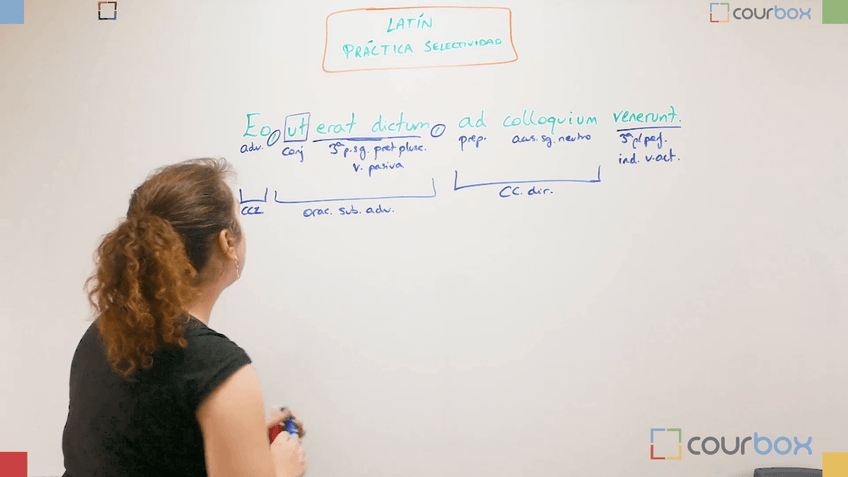 courbox
LATÍN
PRÁCTICA SELECTIVIDAD
Eo, ut erat dictum, ad colloquium venerunt.
adv. conj 3ª p. sg. pret plusc. prep. acus. sg. neutro 3ª pl perf.
v. pasiva ind. v. act.
CC. dir.
orac. sub. adv.
courbox